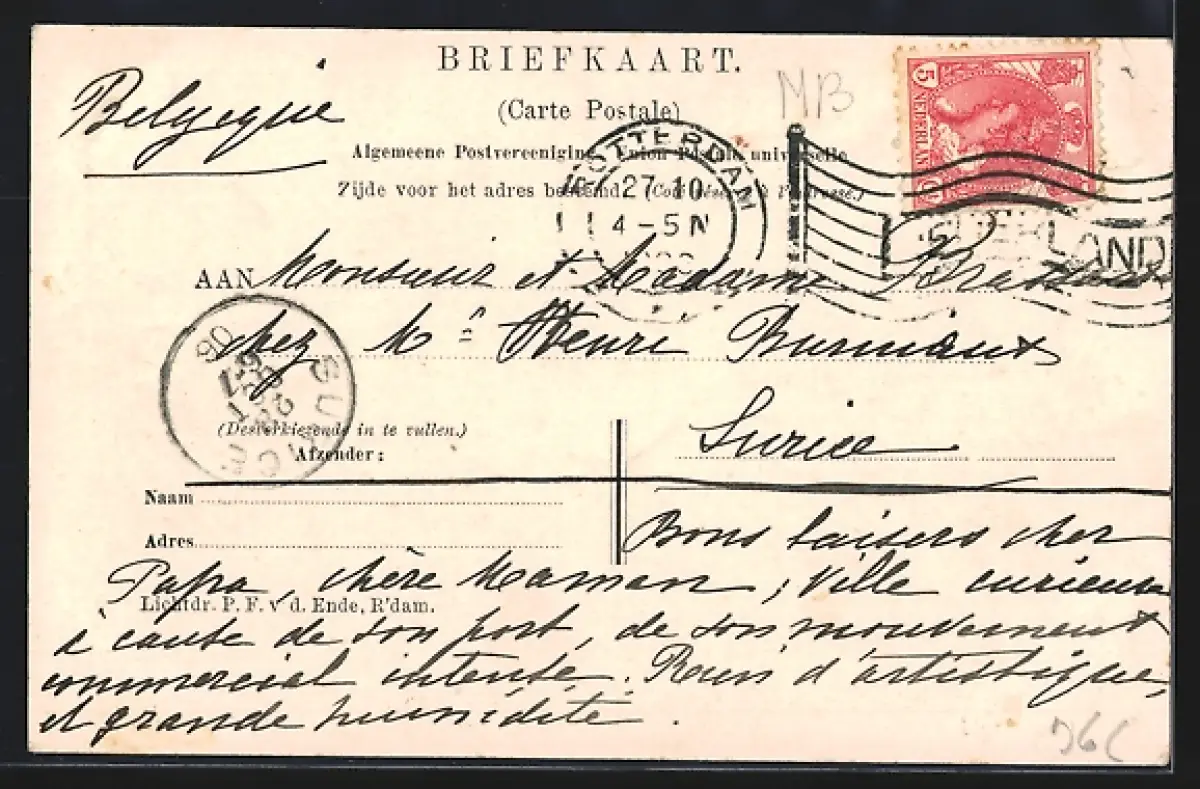 BRIEFKAART.
MB
Belgique
(Carte Postale)
5 NEDERLAND
Algemeene Postvereeniging. Union Postale universelle
Zijde voor het adres bestemd. (Côté réservé à l'adresse.)
ROTTERDAM
27 10
4-5 N
NEDERLAND
AAN Monsieur et Madame
chez Mr Henri Burniaux
SURICE
08
(Desverkiezende in te vullen.)
Surice
Afzender:
Naam
Adres
Bons baisers cher
Papa, chère Maman; Ville curieuse
Lichtdr. P. F. v d. Ende, R'dam.
à cause de son port, de son mouvement
commercial intense. Rien d'artistique,
et grande humidité.